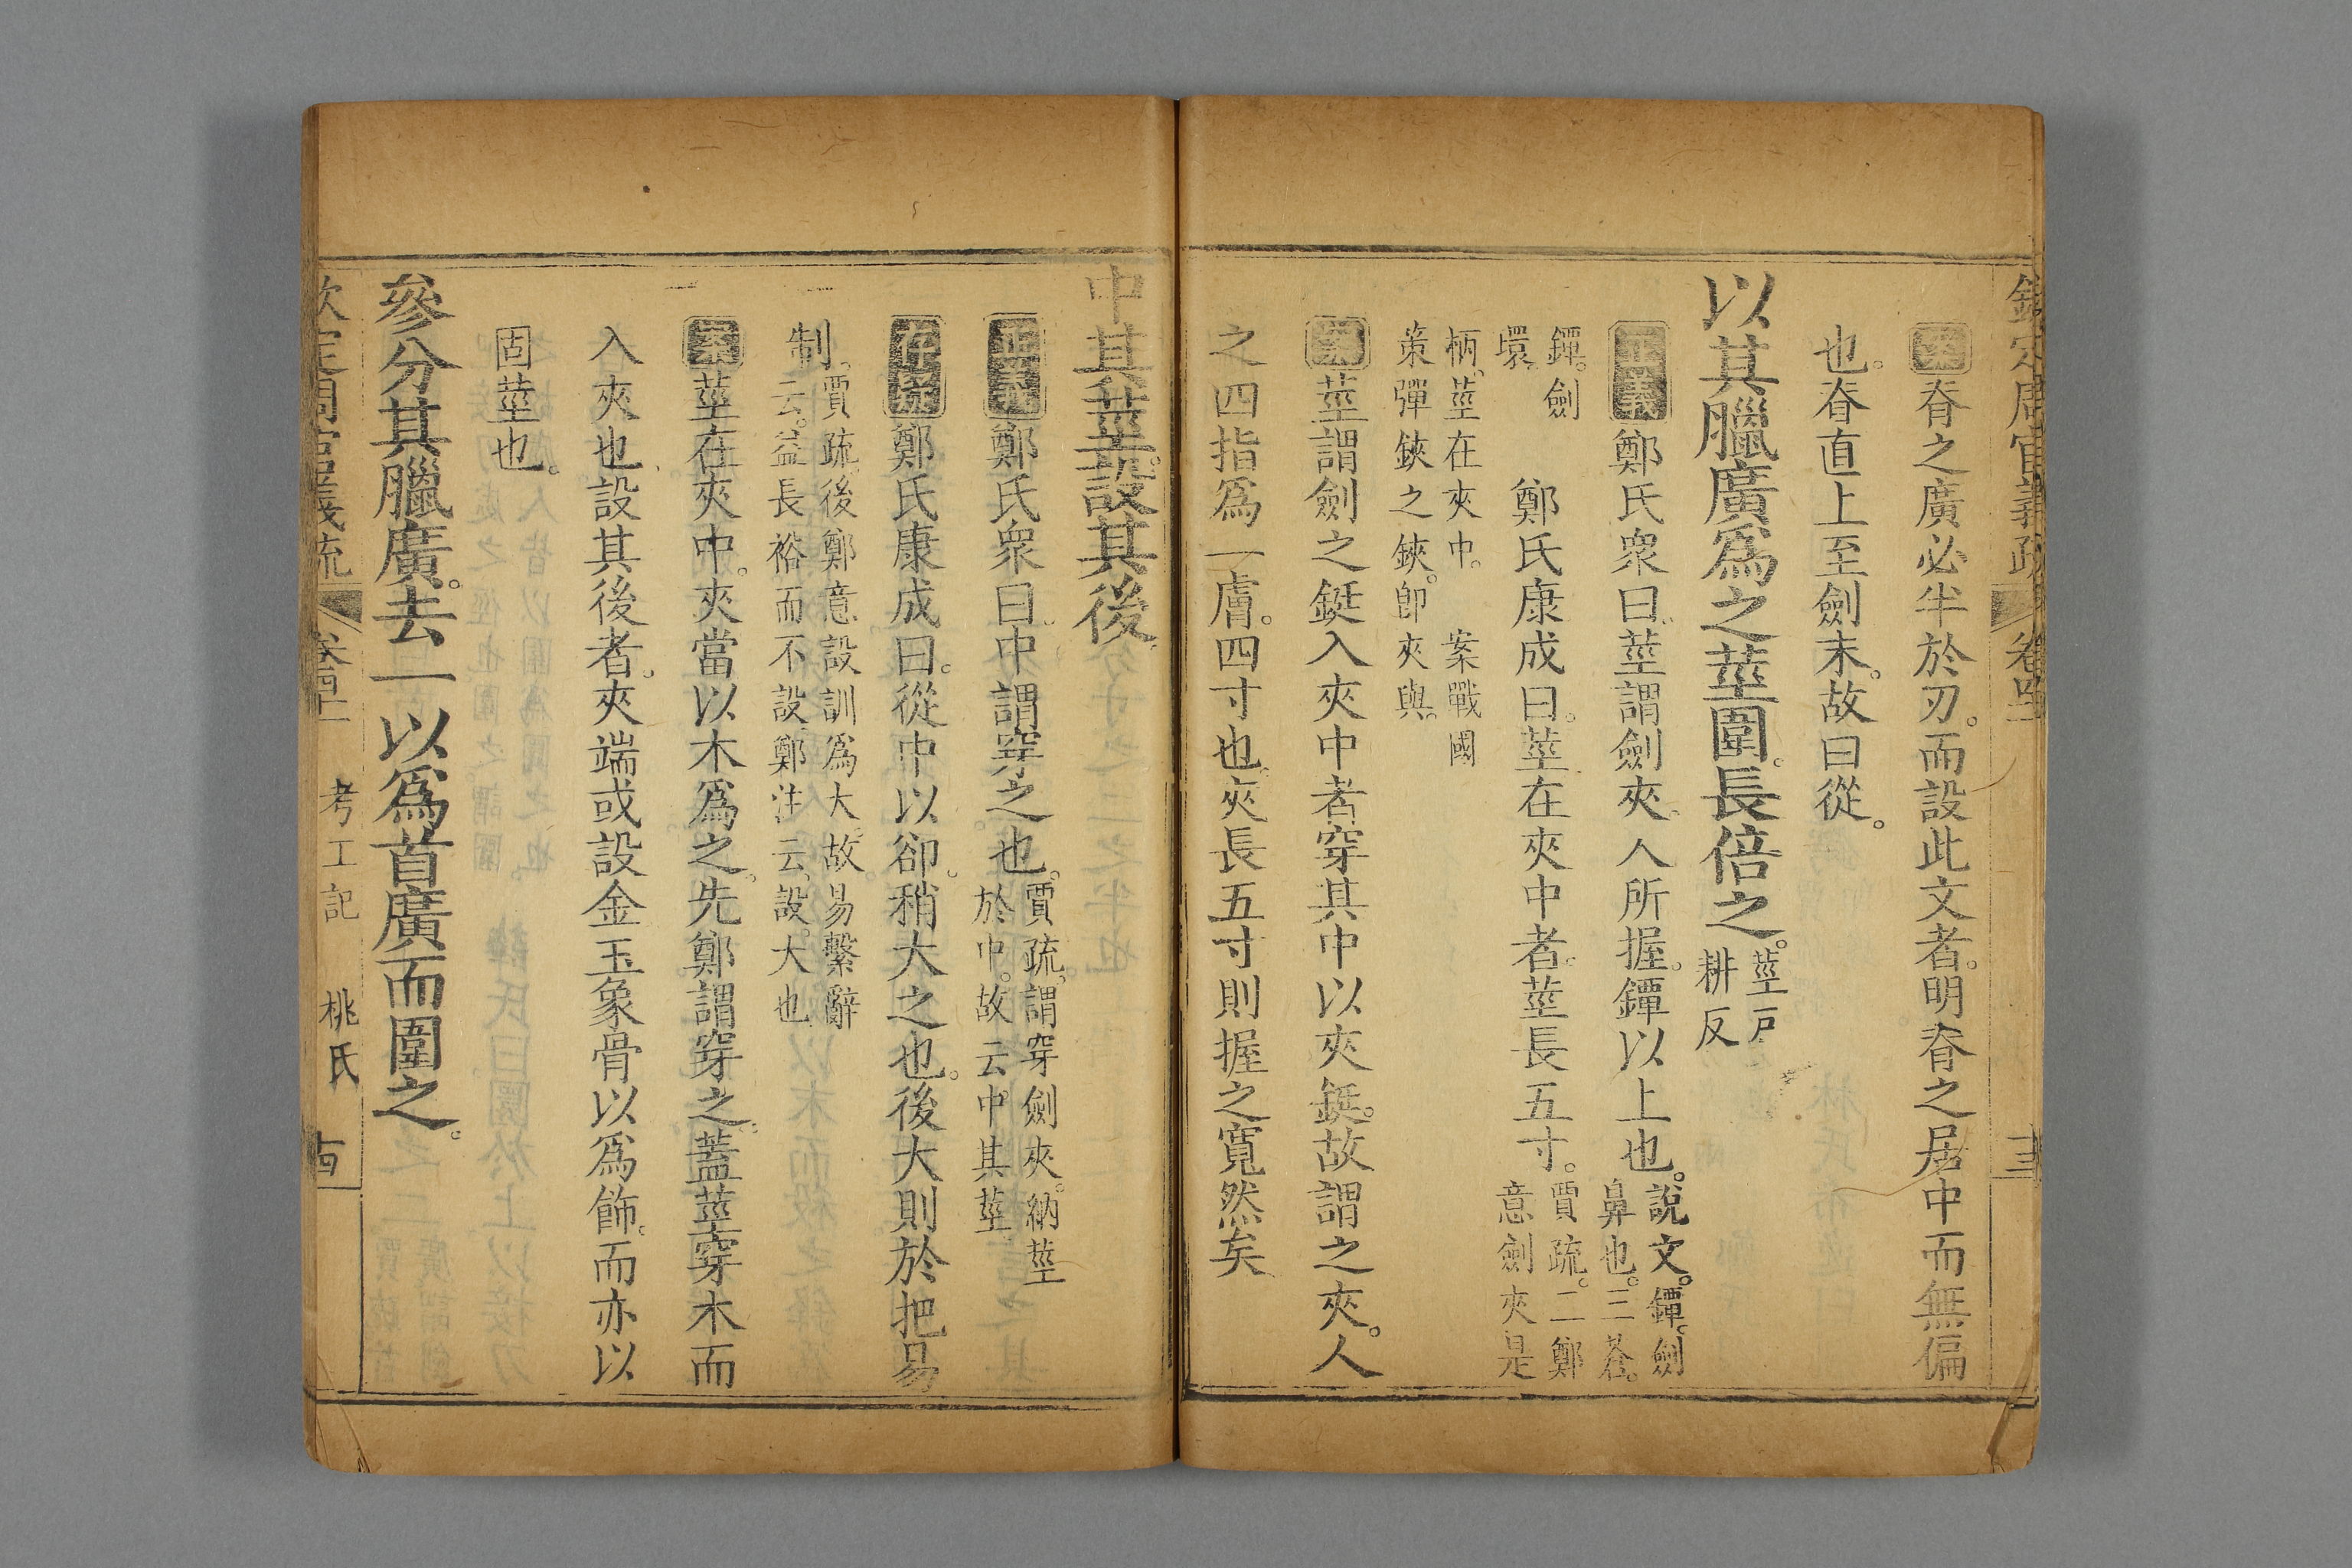 案脊之廣必半於刃。而設此文者。明脊之居中而無偏
也。脊直上至劍末。故曰從。
以其臘廣爲之莖圍。長倍之。莖戸
耕反
正義鄭氏衆曰。莖謂劍夾。人所握。鐔以上也。說文。鐔。劍
鼻也。三蒼。
鐔。劍
環。
鄭氏康成曰。莖在夾中者。莖長五寸。賈疏。二鄭
意劍夾是
柄。莖在夾中。 案戰國
策彈鋏之鋏。卽夾與。
案莖謂劍之鋌入夾中者。穿其中以夾鋌。故謂之夾。人
之四指爲一膚。四寸也。夾長五寸則握之寬然矣
中其莖。設其後。
正義鄭氏衆曰。中謂穿之也。賈疏。謂穿劍夾。納莖
於中。故云中其莖。
存疑鄭氏康成曰。從中以卻。稍大之也。後大則於把易
制。賈疏。後鄭意設訓爲大。故易繫辭
云。益長裕而不設。鄭注云。設。大也
案莖在夾中。夾當以木爲之。先鄭謂穿之。蓋莖穿木而
入夾也。設其後者。夾端或設金玉象骨以爲飾。而亦以
固莖也。
參分其臘廣。去一以爲首廣而圍之。
欽定周官義疏 考工記 桃氏